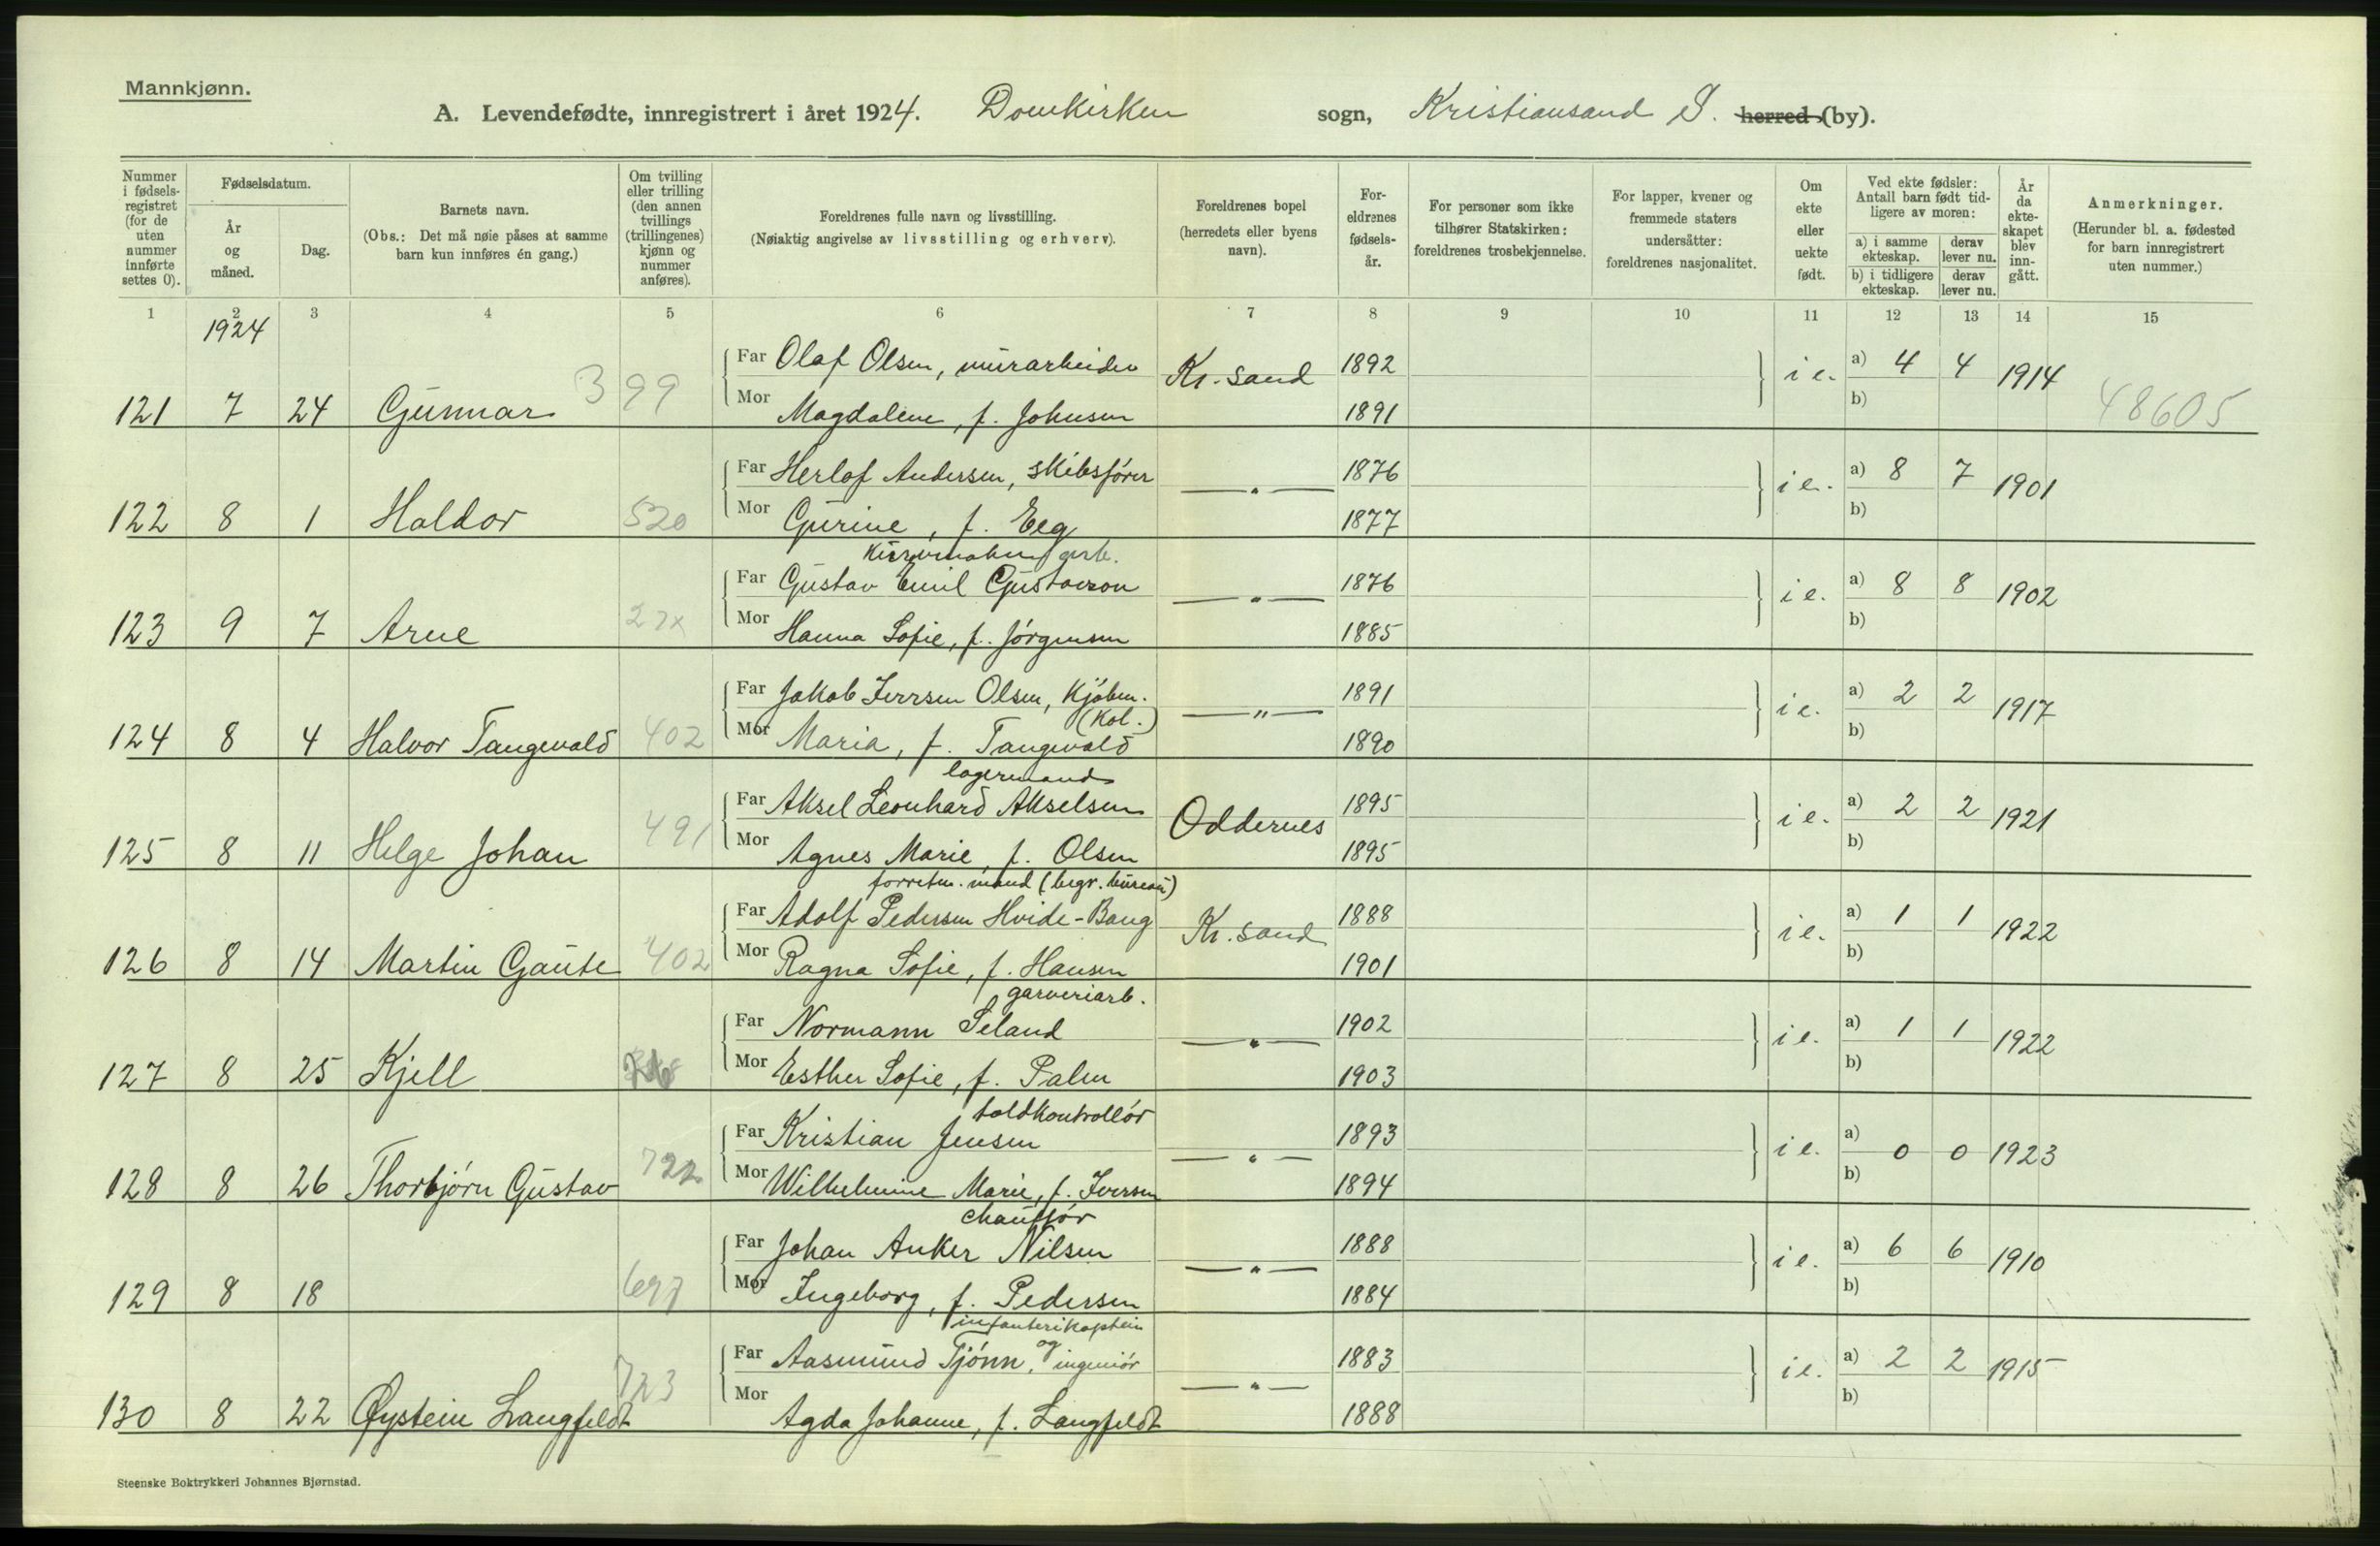 Mannkjønn.
A. Levendefødte, innregistrert i året 1924. Domkirken sogn, Kristiansand S. herred (by).
Nummer i fødsels-registret (for de uten nummer innførte settes 0).
Fødselsdatum.
År og måned.
Dag.
Barnets navn.
(Obs.: Det må nøie påses at samme barn kun innføres én gang.)
Om tvilling eller trilling (den annen tvillings (trillingenes) kjønn og nummer anføres).
Foreldrenes fulle navn og livsstilling.
(Nøiaktig angivelse av livsstilling og erhverv).
Foreldrenes bopel (herredets eller byens navn).
For-eldrenes fødsels-år.
For personer som ikke tilhører Statskirken: foreldrenes trosbekjennelse.
For lapper, kvener og fremmede staters undersåtter: foreldrenes nasjonalitet.
Om ekte eller uekte født.
Ved ekte fødsler: Antall barn født tid-ligere av moren:
a) i samme ekteskap.
derav lever nu.
b) i tidligere ekteskap.
derav lever nu.
År da ekte-skapet blev inn-gått.
Anmerkninger.
(Herunder bl. a. fødested for barn innregistrert uten nummer.)
1 2 3 4 5 6 7 8 9 10 11 12 13 14 15
1924
Far Olaf Olsen, murarbeider Kr. sand 1892 i e. a) 4 4 1914
121 7 24 Gunnar 399 Mor Magdalene, f. Johnsen 1891 b) 48605
Far Herlof Andersen, skibsfører —"— 1876 i e. a) 8 7 1901
122 8 1 Haldor 520 Mor Gurine, f. Eeg 1877 b)
arb.
Far Gustav Emil Gustavson —"— 1876 i e. a) 8 8 1902
123 9 7 Arne Mor Hanna Sofie, f. Jørgensen 1885 b)
Far Jakob Iverssen Olsen, Kjøbm. —"— 1891 i e. a) 2 2 1917
(Kol.)
124 8 4 Halvor Tangevald 402 Mor Maria, f. Tangevald 1890 b)
lagermand
Far Aksel Leonhard Akselsen Oddernes 1895 i e. a) 2 2 1921
125 8 11 Helge Johan 491 Mor Agnes Marie, f. Olsen 1895 b)
forretn. mand (begr. bureau)
Far Adolf Pedersen Hvide-Bang Kr. sand 1888 i e. a) 1 1 1922
126 8 14 Martin Gaute 402 Mor Ragna Sofie, f. Hansen 1901 b)
garveriarb.
Far Normann Seland —"— 1902 i e. a) 1 1 1922
127 8 25 Kjell Mor Esther Sofie, f. Palm 1903 b)
toldkontrollør
Far Kristian Jensen —"— 1893 i e. a) 0 0 1923
128 8 26 Thorbjørn Gustav 722 Mor Wilhelmine Marie, f. Iverssen 1894 b)
chauffør
Far Johan Anker Nilsen —"— 1888 i e. a) 6 6 1910
129 8 18 697 Mor Ingeborg, f. Pedersen 1884 b)
infanterikaptein
Far Aasmund Tjønn, og ingeniør —"— 1883 i e. a) 2 2 1915
130 8 22 Øystein Langfeldt 723 Mor Agda Johanne, f. Langfeldt 1888 b)
Steenske Boktrykkeri Johannes Bjørnstad.